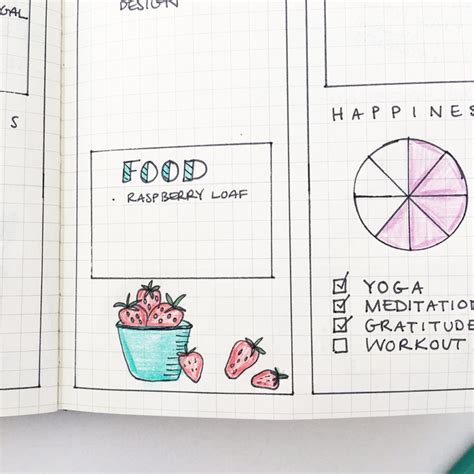 DESIGN
S
FOOD
· RASPBERRY LOAF
HAPPINES
YOGA
MEDITATION
GRATITUDE
WORKOUT